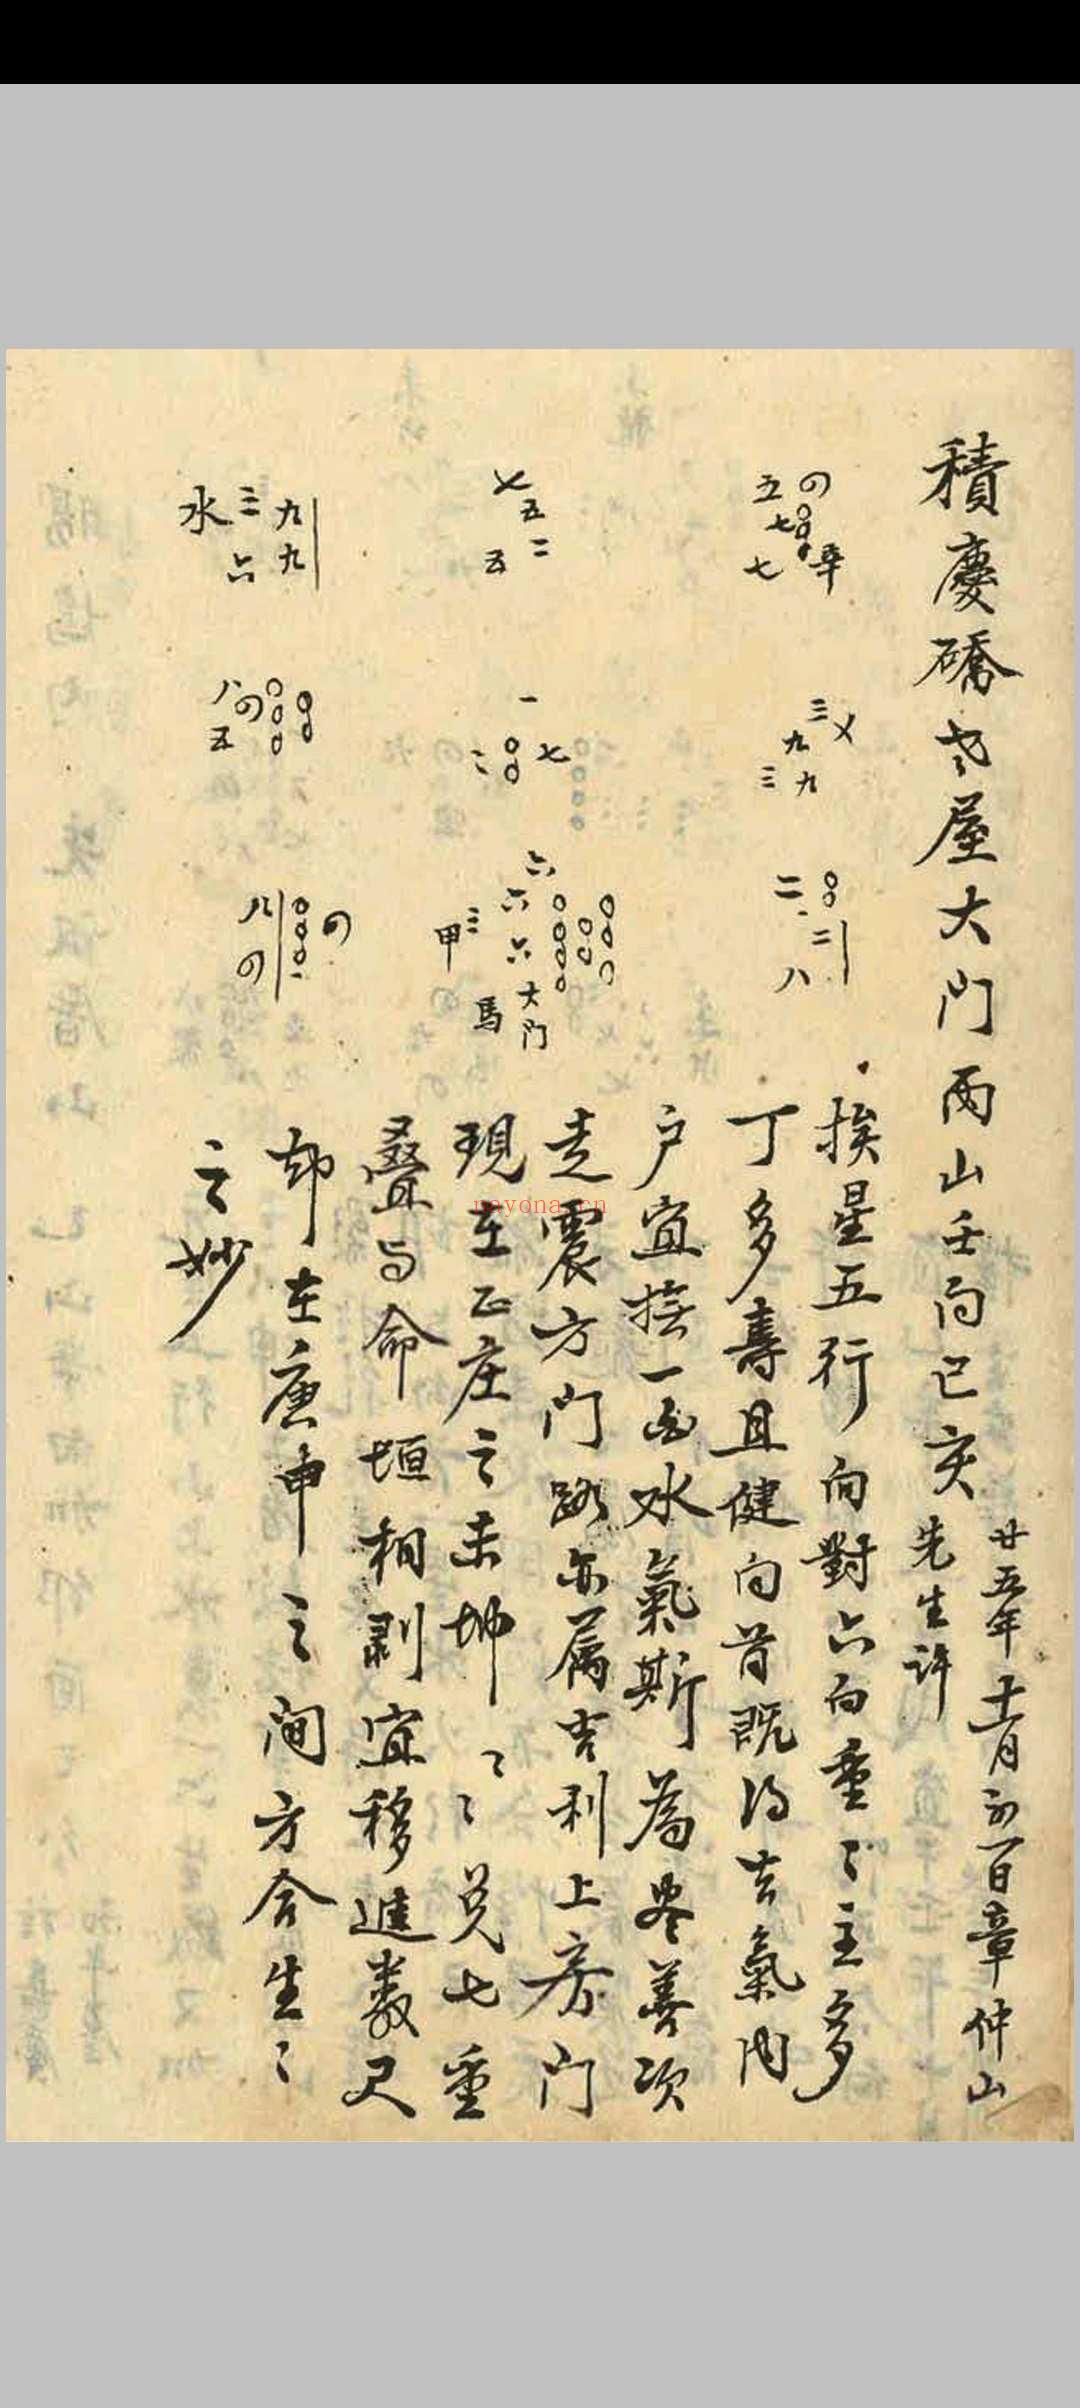 積慶礄老屋大門丙山壬向已亥
廿五年十一月初一日章仲山
先生許
四
五
七
七
辛
七
五
二
五
九
九
三
六
水
三
九
九
三
一
七
二
八
四
五
二
二
八
六
六
六
三
甲
大門
馬
四
八
四
挨星五行向對六白重〻主多
丁多壽且健向首既得吉氣內
戶宜接一白水氣斯為盡善次
走震方門路亦屬吉利上房門
現在正庄之未坤〻〻兌七重
疊与命垣相剥宜移進數尺
却在庚申之间方合生〻
之妙
nayona.cn